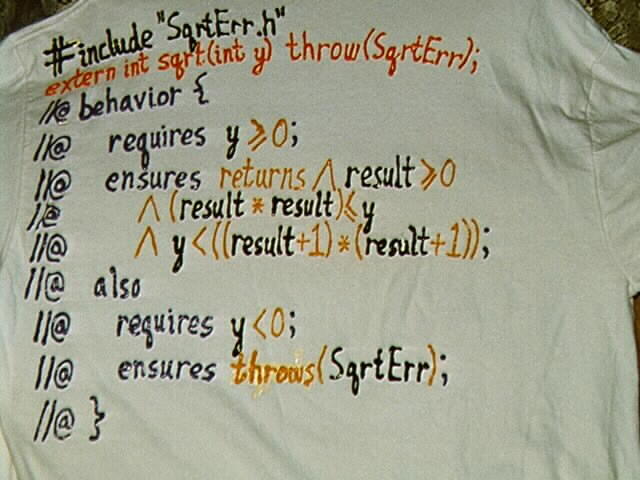 #include "SqrtErr.h"
extern int sqrt(int y) throw(SqrtErr);
//@ behavior {
//@ requires y ≥ 0;
//@ ensures returns ∧ result ≥ 0
//@ ∧ (result * result) ≤ y
//@ ∧ y < ((result+1) * (result+1));
//@ also
//@ requires y < 0;
//@ ensures throws(SqrtErr);
//@ }